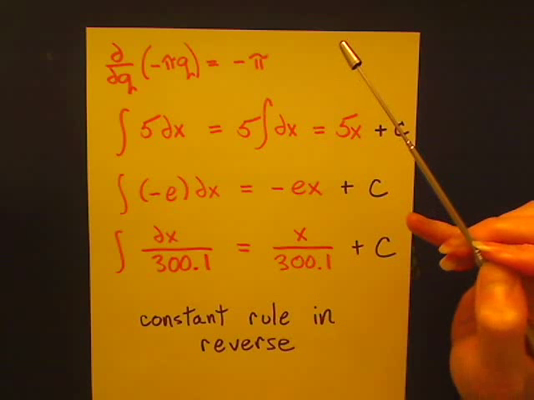 ∂/∂q (-πq) = -π
∫ 5∂x = 5∫∂x = 5x + C
∫ (-e)∂x = -ex + C
∫ ∂x/300.1 = x/300.1 + C
constant rule in
reverse